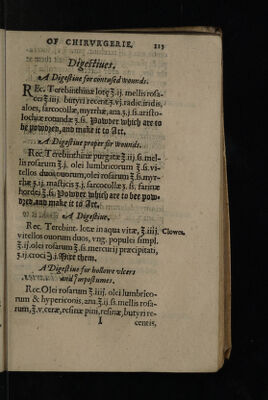 OF CHIRVRGERIE. 223
Digestiues.
A Digestiue for contused wounds.
REc. Terebinthinæ lotę ℥.ij. mellis rosa-
cei ℥.iiij. butyri recent.℥.vj.radic.iridis,
aloes, sarcocollæ, myrrhæ, ana.℥.j.ss.aristo-
lochiæ rotundæ ℥.ss. Powder which are to
be powdred, and make it to Act.
A Digestiue proper for wounds.
Rec. Terebinthinæ purgatæ ℥.iij.ss.mel-
lis rosarum ℥.j. olei lumbricorum ℥.ss.vi-
tellos duos ouorum, olei rosarum ℥.ss.myr-
rhæ ʒ.ij. mastices ʒ.j. sarcocollæ ʒ. ss. farinæ
hordei ℥.ss. Powder which are to bee pow-
dred, and make it to Act.
A Digestiue.
Rec. Terebint. lotæ in aqua vitæ, ℥.iiij. Clowes.
vitellos ouorum duos, vng. populei simpl.
℥.ij.olei rosarum ℥.ss.mercurij præcipitati,
ʒ.ij.croci Mixe them.
A Digestiue for hollowe vlcers
and impostumes.
Rec. Olei rosarum ℥.iij. olei lumbrico-
rum & hypericonis, ana.℥.ij.ss.mellis rosa-
rum, ℥.v.ceræ, resinæ pini, resinæ, butyri re-
I centis,